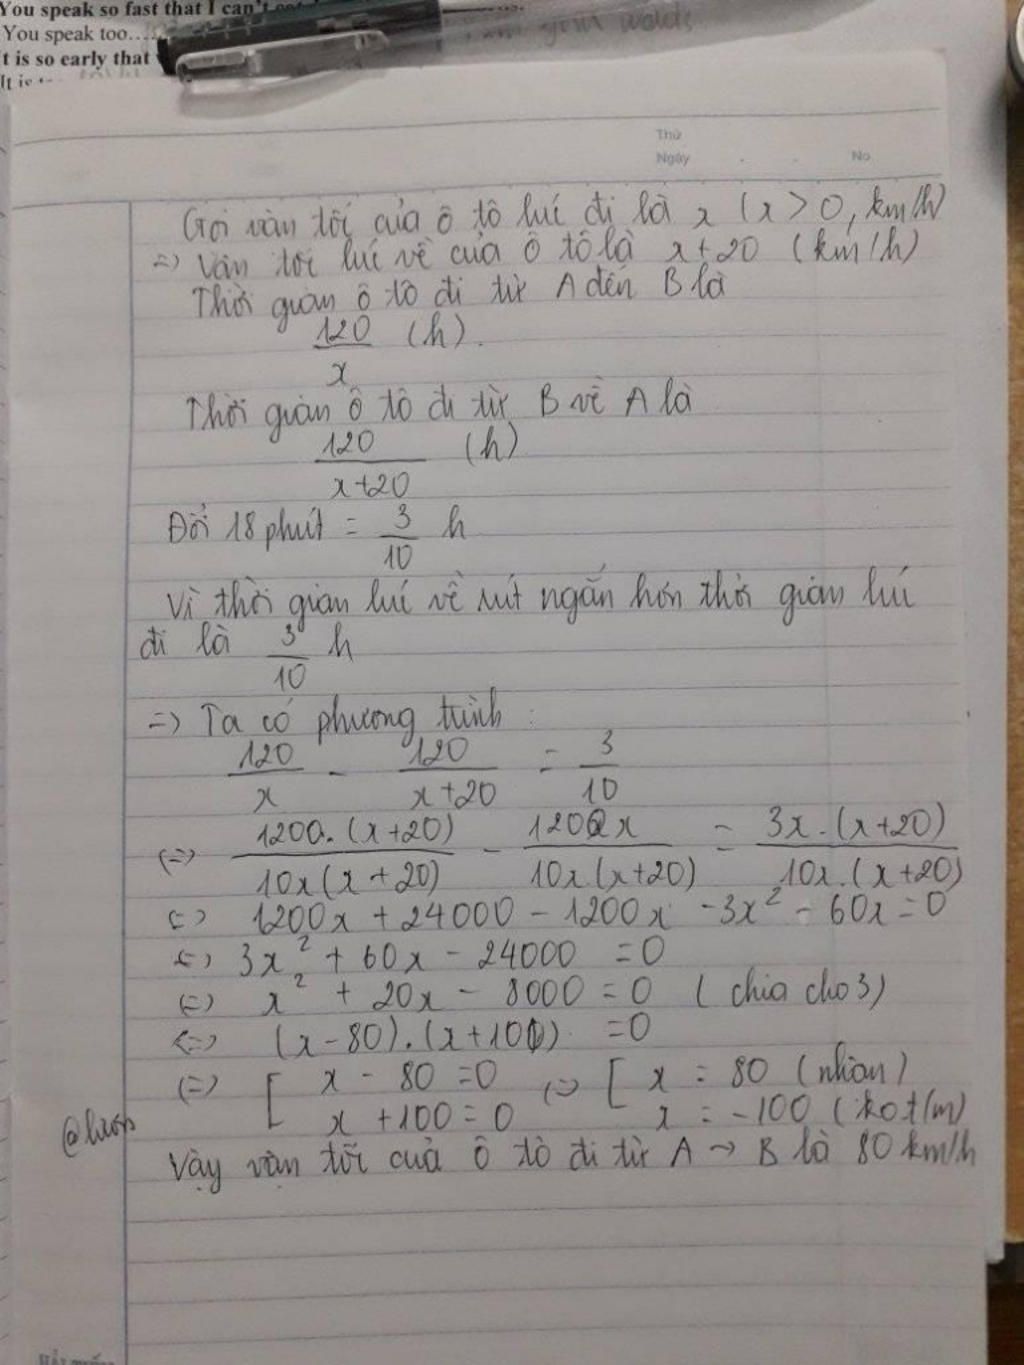 You speak so fast that I can't
You speak too....
t is so early that
It is
your words
Thứ
Ngày No
Gọi vận tốc của ô tô lúc đi là x (x > 0, km/h)
=> Vận tốc lúc về của ô tô là x+20 (km/h)
Thời gian ô tô đi từ A đến B là
120/x (h).
Thời gian ô tô đi từ B về A là
120/(x+20) (h)
Đổi 18 phút = 3/10 h
Vì thời gian lúc về rút ngắn hơn thời gian lúc
đi là 3/10 h
=> Ta có phương trình :
120/x - 120/(x+20) = 3/10
(=> 1200.(x+20)/10x(x+20) - 1200x/10x.(x+20) = 3x.(x+20)/10x.(x+20)
<=> 1200x + 24000 - 1200x - 3x² - 60x = 0
<=> 3x² + 60x - 24000 = 0
(=) x² + 20x - 8000 = 0 ( chia cho 3)
<=> (x-80).(x+100) = 0
(=) [ x - 80 = 0 <=> [ x = 80 (nhận)
x + 100 = 0 x = -100 (ko t/m)
Vậy vận tốc của ô tô đi từ A → B là 80 km/h